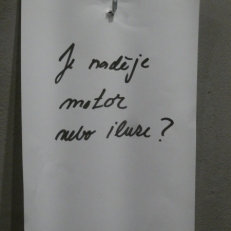 Je naděje
motor
nebo iluze?